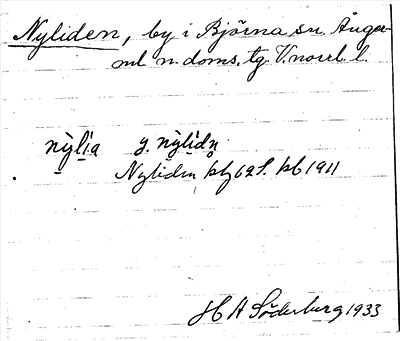 Nyliden, by i Björna sn. Ånger-
ml n. doms. tg V.norrl. l.
nỳlia y. nỳlidn̥
Nyliden kbg 62 f. kb 1911
H A Söderberg 1933